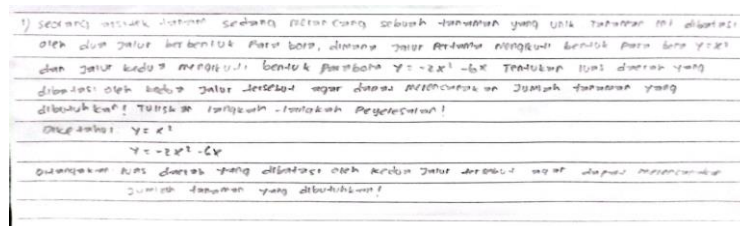 1) seorang arsitek taman sedang merancang sebuah tanaman yang unik Tanaman ini dibatasi
oleh dua jalur berbentuk Para bola, dimana jalur Pertama mengikuti bentuk para bola y = x²
dan jalur kedua mengikuti bentuk parabola y = -2x² - 6x Tentukan luas daerah yang
dibatasi oleh kedua jalur tersebut agar dapat merencanakan Jumlah tanaman yang
dibutuhkan! Tuliskan langkah - langkah Peyelesaian!
Diketahui y = x²
y = -2x² - 6x
Ditanyakan luas daerah yang dibatasi oleh kedua Jalur tersebut agar dapat merencanakan
Jumlah tanaman yang dibutuhkan!